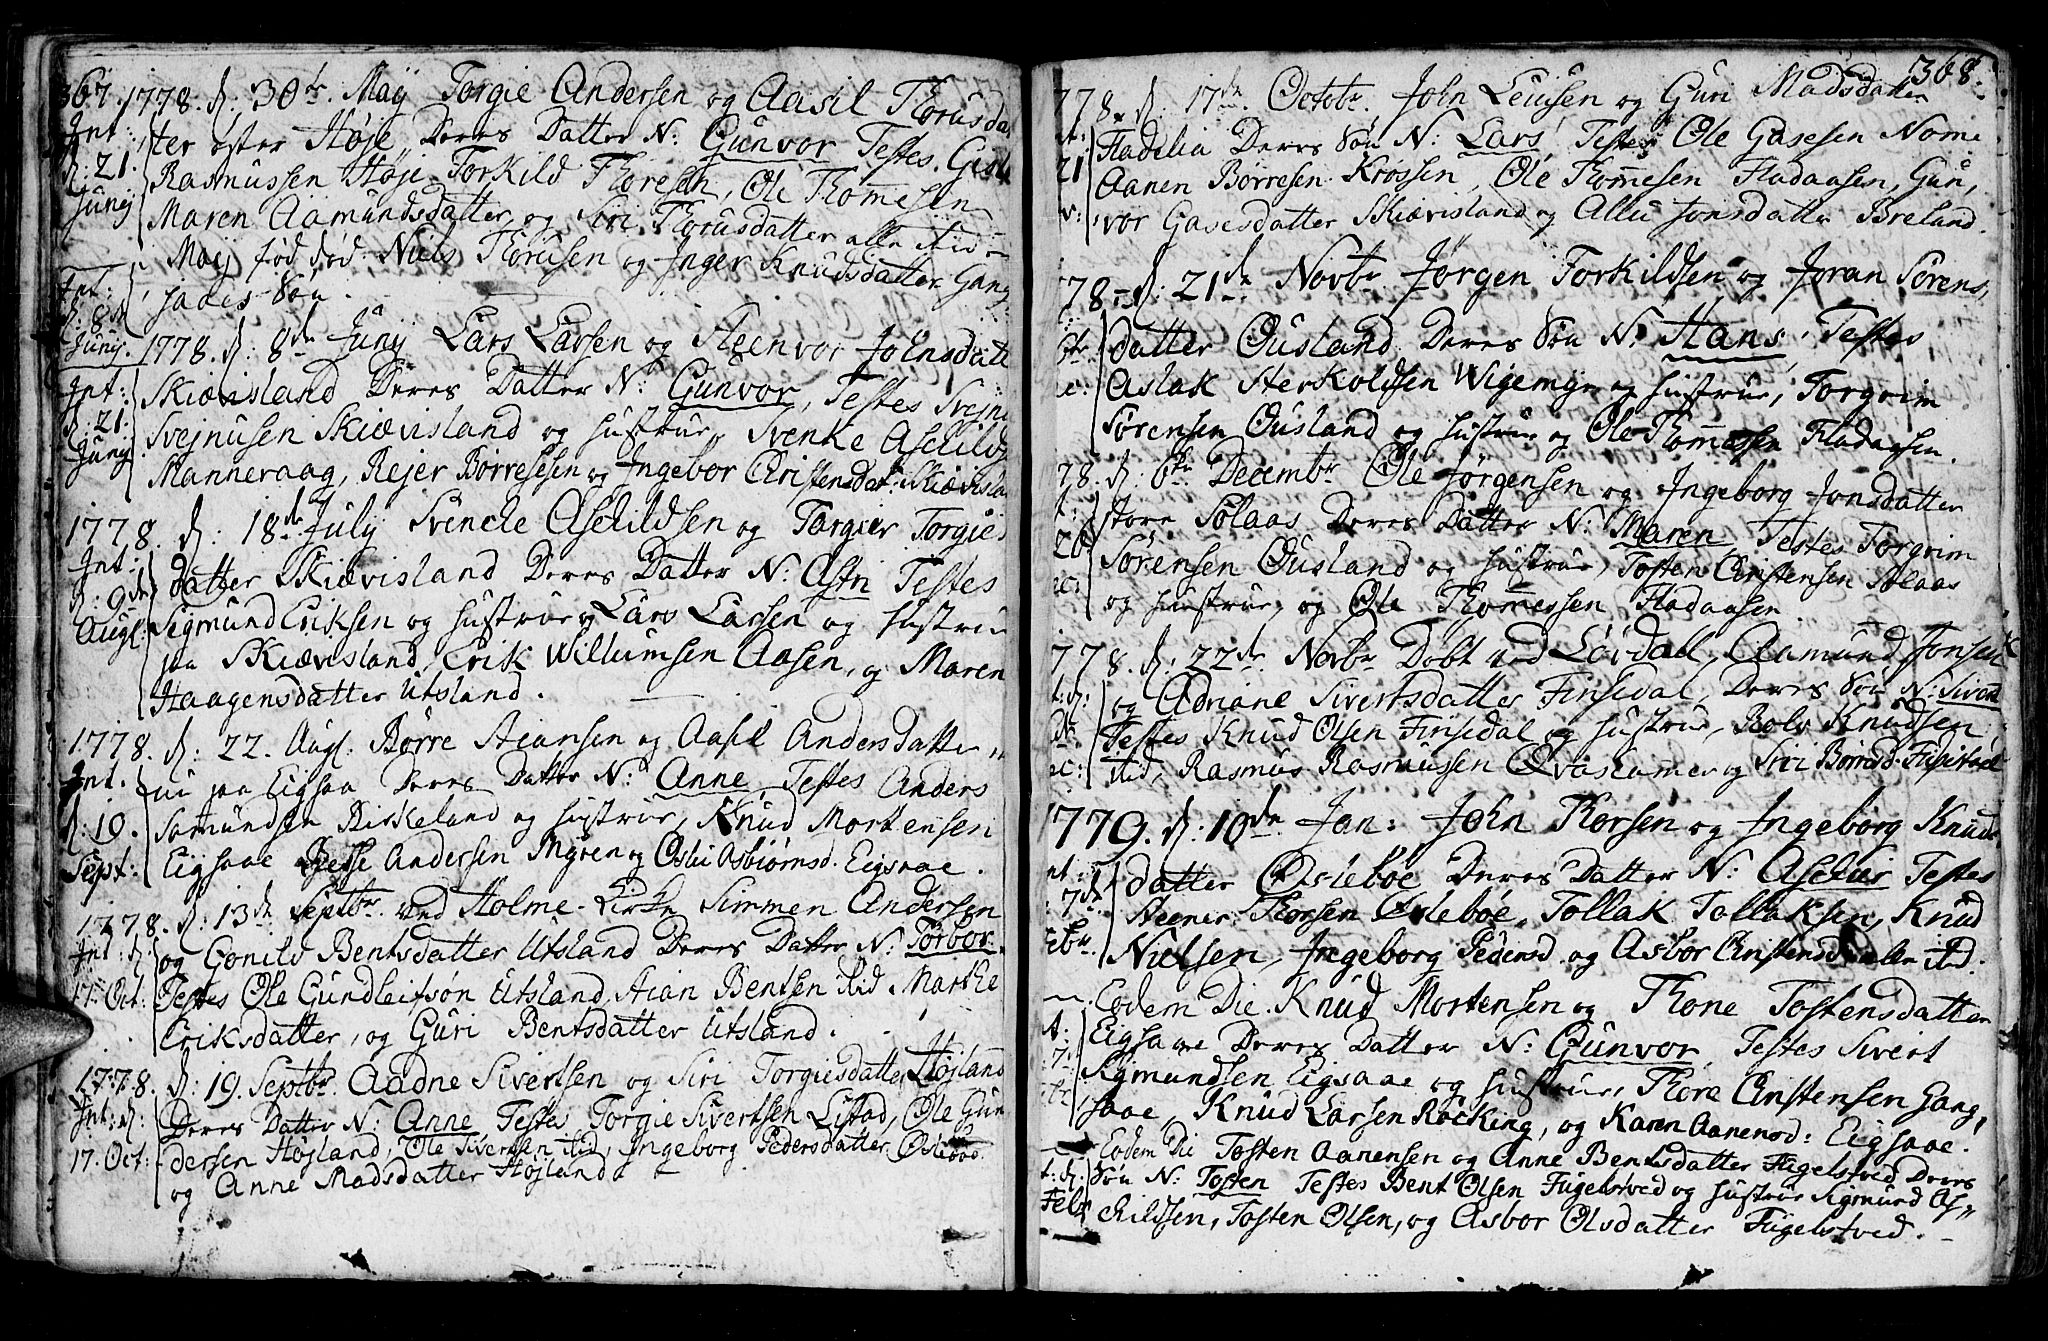 367. 1778. d: 30te. Maij Torgie Andersen og Aasil Thorusdat
Int: ter øster Høje, Deres Datter N: Gunvor Testes. Gisle
d: 21. Rasmussen Høje Torkild Thoresen, Ole Thomesen
Junij Maren Aamundsdatter, og Siri Thorusdatter alle
Maij fød død Niels Thorusen og Inger Knudsdatter Gang
Int: saaes Søn.
d: 8de
Junij. 1778. d: 8de Junij Lars Larsen og Steenvor Johnsdatt
Int: Skiævisland Deres Datter N: Gunvor, Testes Svejn
d: 21. Svejnusen Skiævisland og hustrue, Svenke Aschilds
Junij. Manneraag, Rejer Børresesen og Ingebor Christensdat: Skiævisla
1778. d: 18de July Svencke Aschildsen og Targier Torgies
Int: datter Skiævisland Deres Datter N: Astri Testes
d: 9de Sigmund Eriksen og hustrue, Lars Larsen og hustrue
Augl: paa Skiævisland, Erik Willumsen Aasen, og Maren
Haagensdatter Utsland.
1778. d: 22. Augl. Børre Stiansen og Aasil Andersdatter
Int. paa Eigsaa Deres Datter N: Anne, Testes Anders
d: 19. Samundsen Birkeland og hustrue, Knud Mortensen
Sept: Eigsaae Andersen Myren og Asbiørnsd. Eigsaae.
1778. d: 13de Septbr. ved Holme-Kirke Simmen Andersen
Int: d: og Gonild Bentsdatter Utsland Deres Datter N: Torbor
17. Oct: Testes Ole Gundleifsøn Utsland, Stian Bentsen ibid Marthe
Eriksdatter, og Guri Bentsdatter Utsland.
1778. d: 19. Septbr. Aadne Sivertsen og Siri Torgiesdatter Højland
Int: d: Deres Datter N: Anne Testes Torgie Sivertsen Listad, Ole Gun
17. Oct: dersen Højland, Ole Siversen ibid, Ingeborg Pedersdatter
og Anne Madsdatter Højland
368.
778. d: 17de. Octobr. John Leuisen og Guri Madsdatter
Fladelia Deres Søn N: Lars, Testes Ole Gasesen Nome
21 Aanen Børresen Krossen, Ole Thomesen Fladaasen, Gun,
vor Gasesdatter Skiævisland og Allu Jonsdatter Breland.
78. d: 21de Novbr Jørgen Torkildsen og Joran Sørens,
datter Ousland Deres Søn N: Hans, Testes
Aslak Sterkoldsen Wigemyr og hustrue, Torgrim
Sørensen Ousland og hustrue og Ole Thomessen Fladaasen.
78. d: 6te Decembr Ole Jørgensen og Ingeborg Jonsdatter
store Solaas Deres Datter N: Maren Testes Torgrim
20 Sørensen Ousland og hustrue, Tosten Christensen Solaas
og hustrue, og Ole Thomessen Fladaasen
778. d: 22de Novbr Døbt ved Løvdal, Aamund Jonsen
og Adriane Sivertsdatter Finsdal, Deres Søn N: Sivert
Testes Knud Olsen Finsdal og hustrue, Rolv Knudsen
ibid, Rasmus Rasmussen og Siri Børresd.
1779. d: 10de Jan: John Thorsen og Ingeborg Knuds
datter Oslebøe Deres Datter N: Testes
7de Steener Thorsen Oslebøe, Tollak Tollaksen, Knud
Febr. Nielsen, Ingeborg Pedersd. og Asbor Christensd. alle ibid.
Eodem Die. Knud Mortensen og Thone Tostensdatter
Eigsaae Deres Datter N: Gunvor, Testes Sivert
Sigmundsen Eigsaae og hustrue, Thore Christensen Gang,
saae, Knud Larsen Rocking, og Karen Aanensd: Eigsaae.
Eodem Die Tosten Aanensen og Anne Bentsdatter Fugelstved Deres
Søn N: Tosten Testes Bent Olsen Fugelstved og hustrue Sigmund As,
Febr childsen, Tosten Olsen, og Asbor Olsdatter Fugelstved.